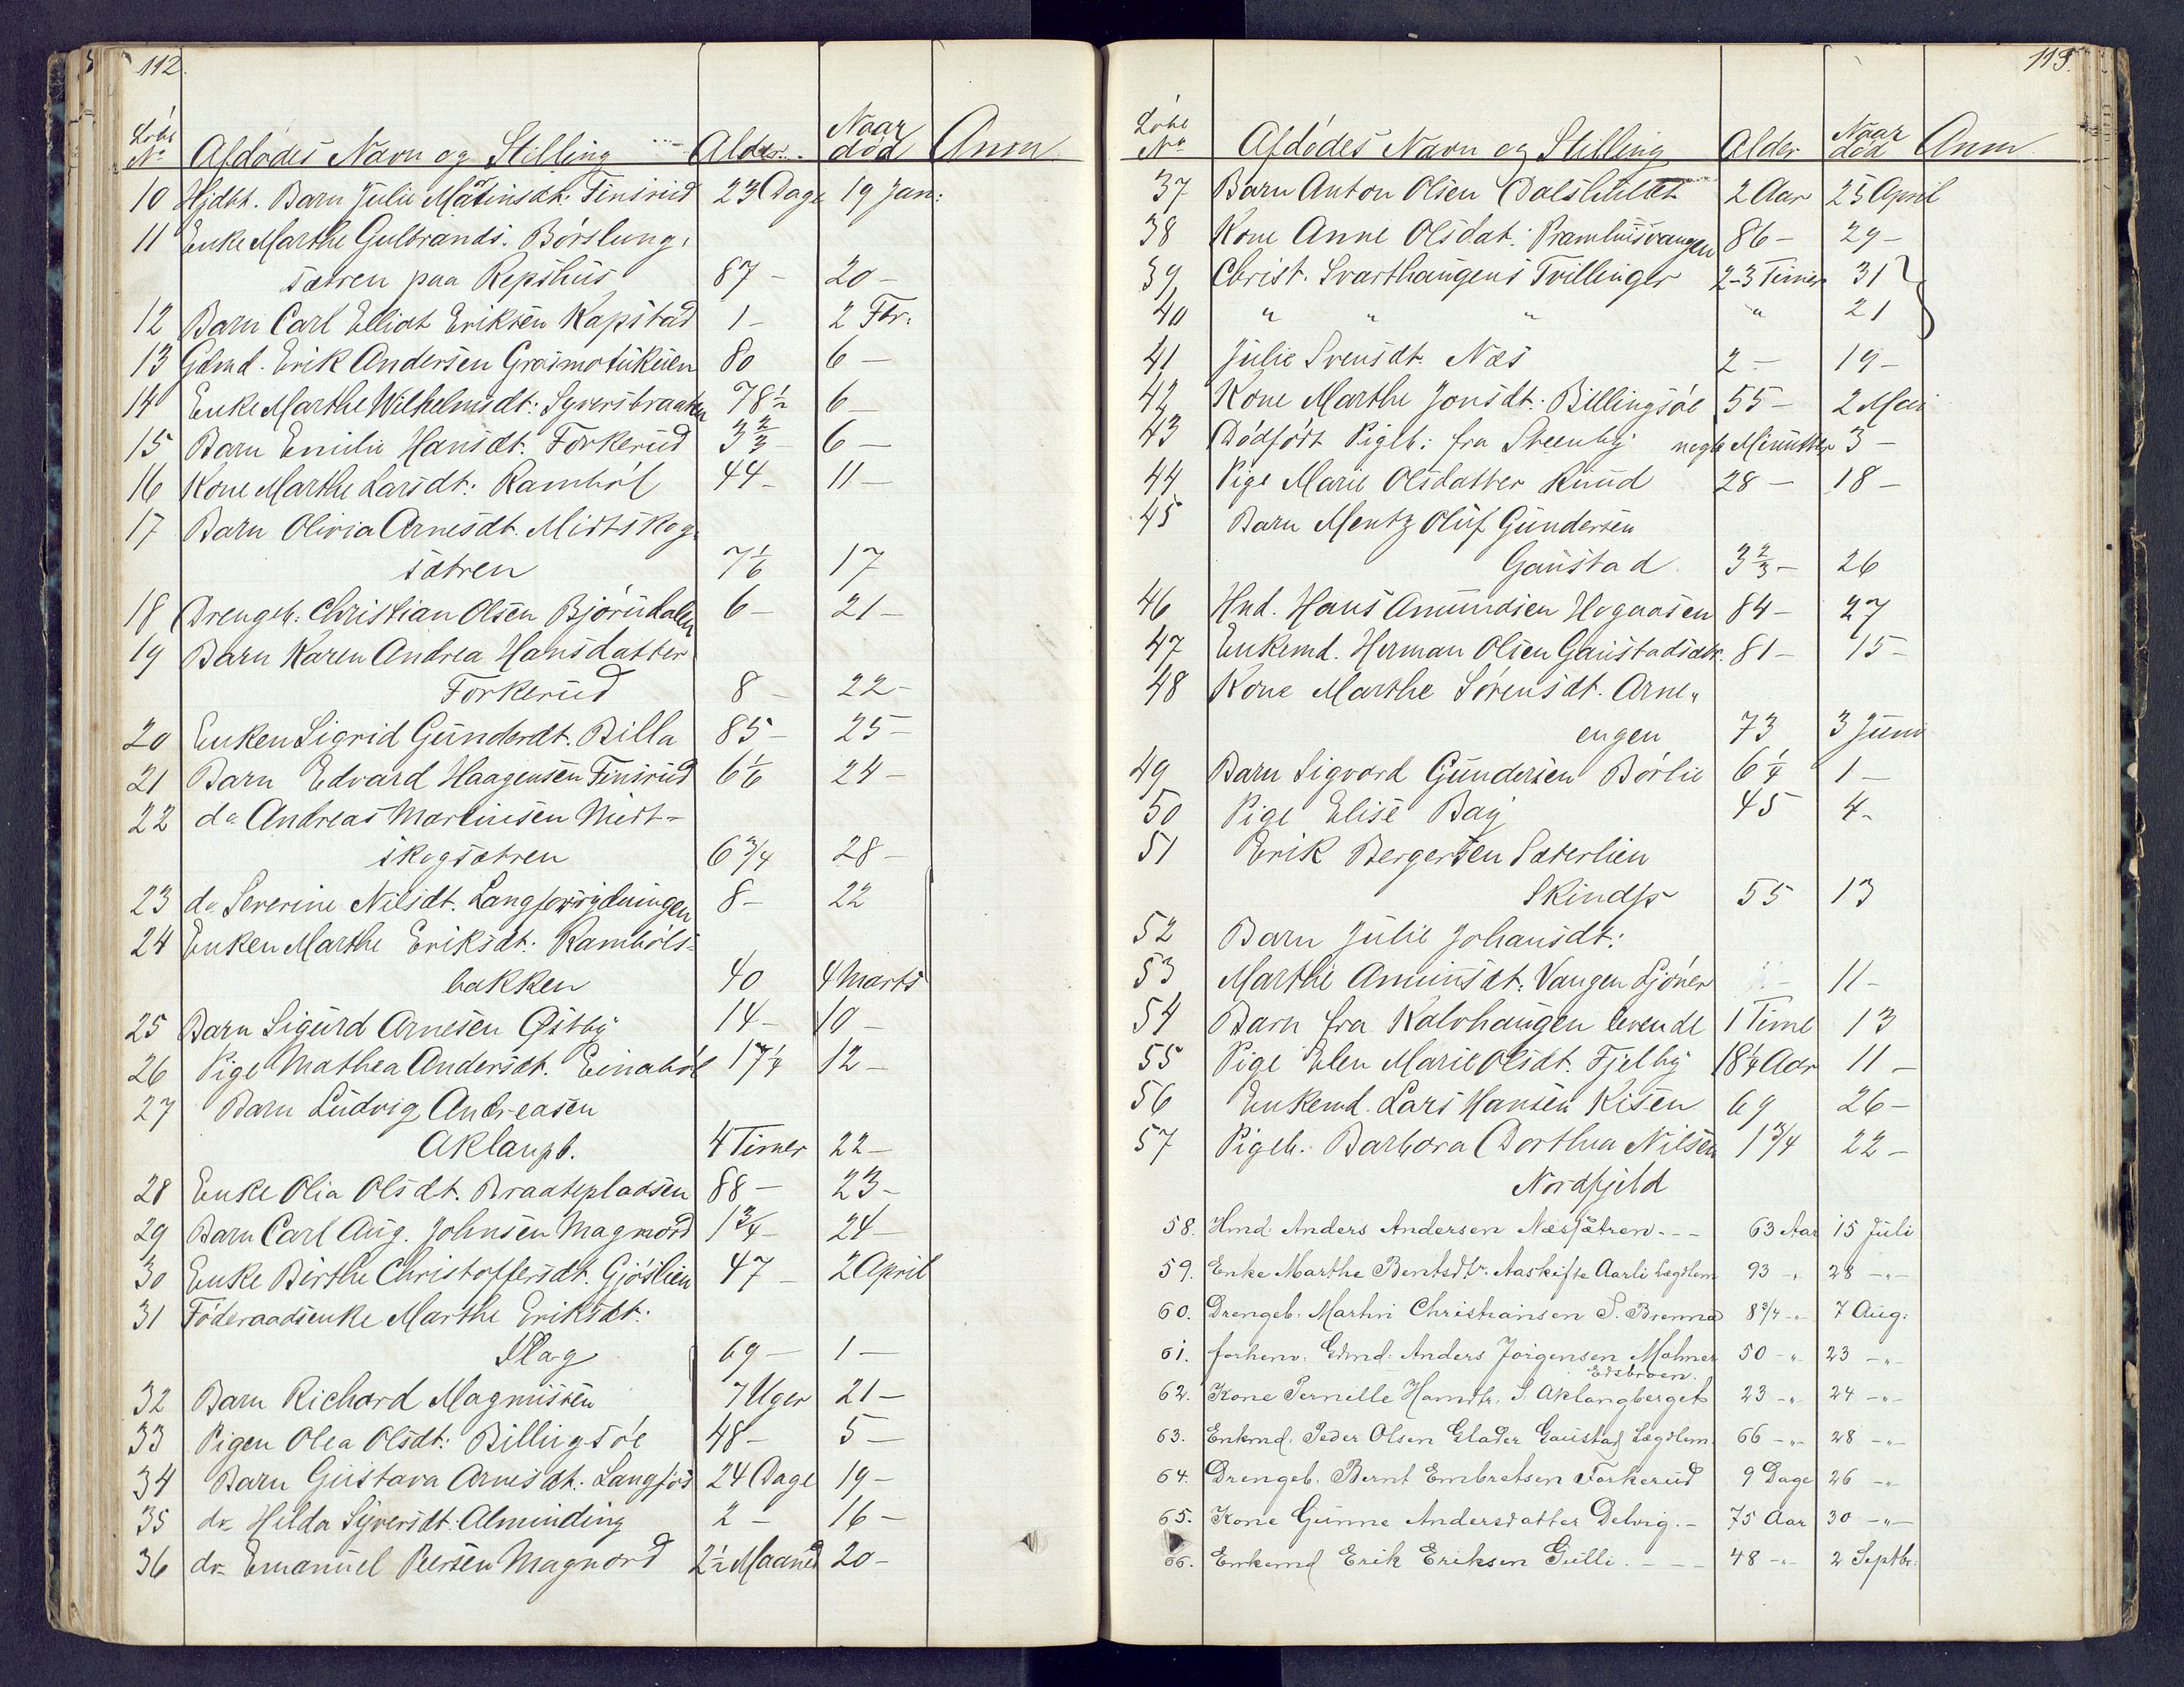 112.
Løbe No Afdødes Navn og Stilling Alder. Naar død Anm
10 Hjdbt. Barn Julie Matinsdt. Finsrud 23 Dage 19 Jan:
11 Enke Marthe Gulbrands. Børslung,
sætren paa Repshus 87 - 20 -
12 Barn Carl Elliot Eriksen Kapstad 1 - 2 Fbr:
13 Gdmd. Erik Andersen Grasmotukuen 80 6 -
14 Enke Marthe Wilhelmsdt: Syversbraaten 78½ 6 -
15 Barn Emilie Hansdt. Forkerud 3⅔ - 6 -
16 Kone Marthe Larsdt: Ramhøl 44 - 11 -
17 Barn Olivia Arnesdt. Midtskog-
sætren 7⅙ 17
18 Drengeb. Christian Olsen Bjørndalen 6 - 21 -
19 Barn Karen Andrea Hansdatter
Forkerud 8 - 22 -
20 Enken Sigrid Gunderdt. Billa 85 - 25 -
21 Barn Edvard Haagensen Finsrud 6⅙ 24 -
22 do Andreas Martinsen Midt-
skogsætren 6 3/4 28 -
23 do Severine Nilsdt. Langfosrydningen 8 - 22
24 Enken Marthe Eriksdt: Ramhøls-
bakken 40 4 Marts
25 Barn Sigurd Arnesen Østby 14 - 10 -
26 Pige Mathea Andersdt. Einahøl 17¼ 12 -
27 Barn Ludvig Andreasen
Aklangb. 4 Timer 22 -
28 Enke Olia Olsdt. Braatepladsen 88 - 23 -
29 Barn Carl Aug. Johnsen Magnord 1¾ - 24 -
30 Enke Birthe Christoffersdt. Gjøslien 47 - 2 April
31 Føderaadsenke Marthe Eriksdt:
Plag 69 - 1 -
32 Barn Richard Magnussen 7 Uger 21 -
33 Pigen Olea Olsdt: Billingsøe 48 - 5 -
34 Barn Gustava Arnesdt. Langfos 24 Dage 19 -
35 do Hilda Syversdt. Alminding 2 - 16 -
36 do Emanuel Peersen Magnord 2½ Maaned 20 -
113.
Løbe No Afdødes Navn og Stilling Alder Naar død Anm.
37 Barn Anton Olsen Dalshullet 2 Aar 25 April
38 Kone Anne Olsdat: Pramhusvangen 86 - 29 -
39 Christ. Svarthaugens Tvillinger 2-3 Timer 31
40 " " " " 21
41 Julie Svensdt. Næs 2 - 19 -
42 Kone Marthe Jonsdt: Billingsøe 55 - 2 Mai
43 Dødfødt Pigeb: fra Steenby nogle Minutter 3 -
44 Pige Marie Olsdatter Ruud 28 - 18 -
45 Barn Mentz Oluf Gundersen
Gaustad 3⅔ - 26
46 Hmd. Hans Amundsen Hogaasen 84 - 27
47 Enkemd. Herman Olsen Gaustadsæt. 81 - 15 -
48 Kone Marthe Sørensdt. Arne„
engen 73 3 Juni
49 Barn Sigvard Gundersen Børlie 6¼ 1 -
50 Pige Elise Bay 45 4 -
51 Erik Bergersen Sæterlien
Skindfr 55 13
52 Barn Julie Johansdt:
53 Marthe Amunsdt: Vangen Sjøner - 11 -
54 Barn fra Kalvhaugen levende 1 Time 13
55 Pige Elen Marie Olsdt. Fjelby 18¼ Aar 11 -
56 Enkemd. Lars Hansen Kisen 69 26 -
57 Pigeb. Barbara Dorthea Nilsen 1¾ 22 -
Nordfjeld
58. Hmd. Anders Andersen Næssætren - - - 63 Aar 15 Juli
59. Enke Marthe Bentsdtr. Aaskifte Aarli Lægdlem 93 -"- 28 -"-
60. Drengeb. Martin Christiansen S. Brenna 8¾ -"- 7 Aug.
61. forhenv. Gdmd. Anders Jørgensen Molmer 50 -"- 23 -"-
Edsbroen.
62. Kone Pernelle Hansdtr. S. Aklangberget 23 -"- 24 -"-
63. Enkmd. Peder Olsen Glader Gaustad Lægdlem. 66 -"- 28 -"-
64. Drengeb. Bernt Embretsen Forkerud 9 Dage 26 -"-
65. Kone Gunne Andersdatter Delvig. - 75 Aar 30 -"-
66. Enkemd Erik Eriksen Gulli. - - - 48 -"- 2 Septbr.